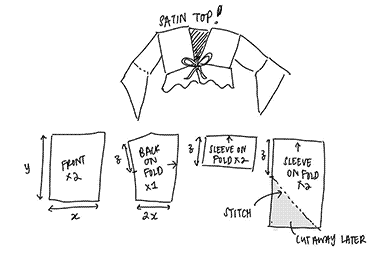 SATIN TOP!
y
FRONT
x2
x
z
BACK
ON
FOLD
x1
2x
z
SLEEVE ON
FOLD x2
z
SLEEVE
ON FOLD
x2
STITCH
CUT AWAY LATER